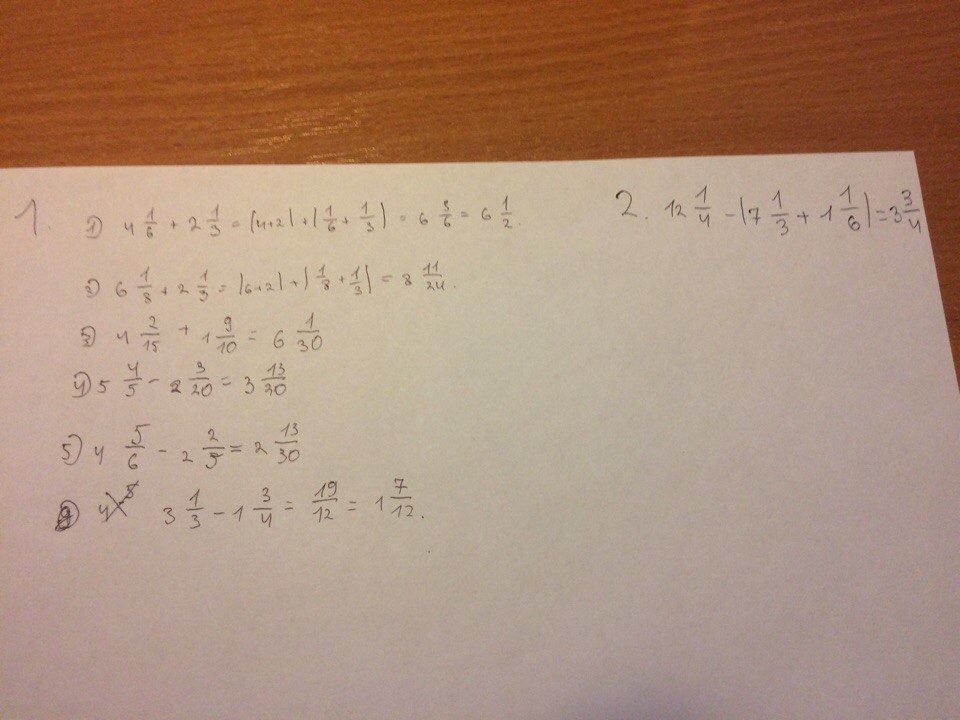 1. 1) 4 1/6 + 2 1/3 = (4+2) + (1/6 + 1/3) = 6 3/6 = 6 1/2.
2) 6 1/8 + 2 1/3 = (6+2) + (1/8 + 1/3) = 8 11/24.
3) 4 2/15 + 1 9/10 = 6 1/30
4) 5 4/5 - 2 3/20 = 3 13/20
5) 4 5/6 - 2 2/5 = 2 13/30
3 1/3 - 1 3/4 = 19/12 = 1 7/12.
2. 12 1/4 - (7 1/3 + 1 1/6) = 3 3/4